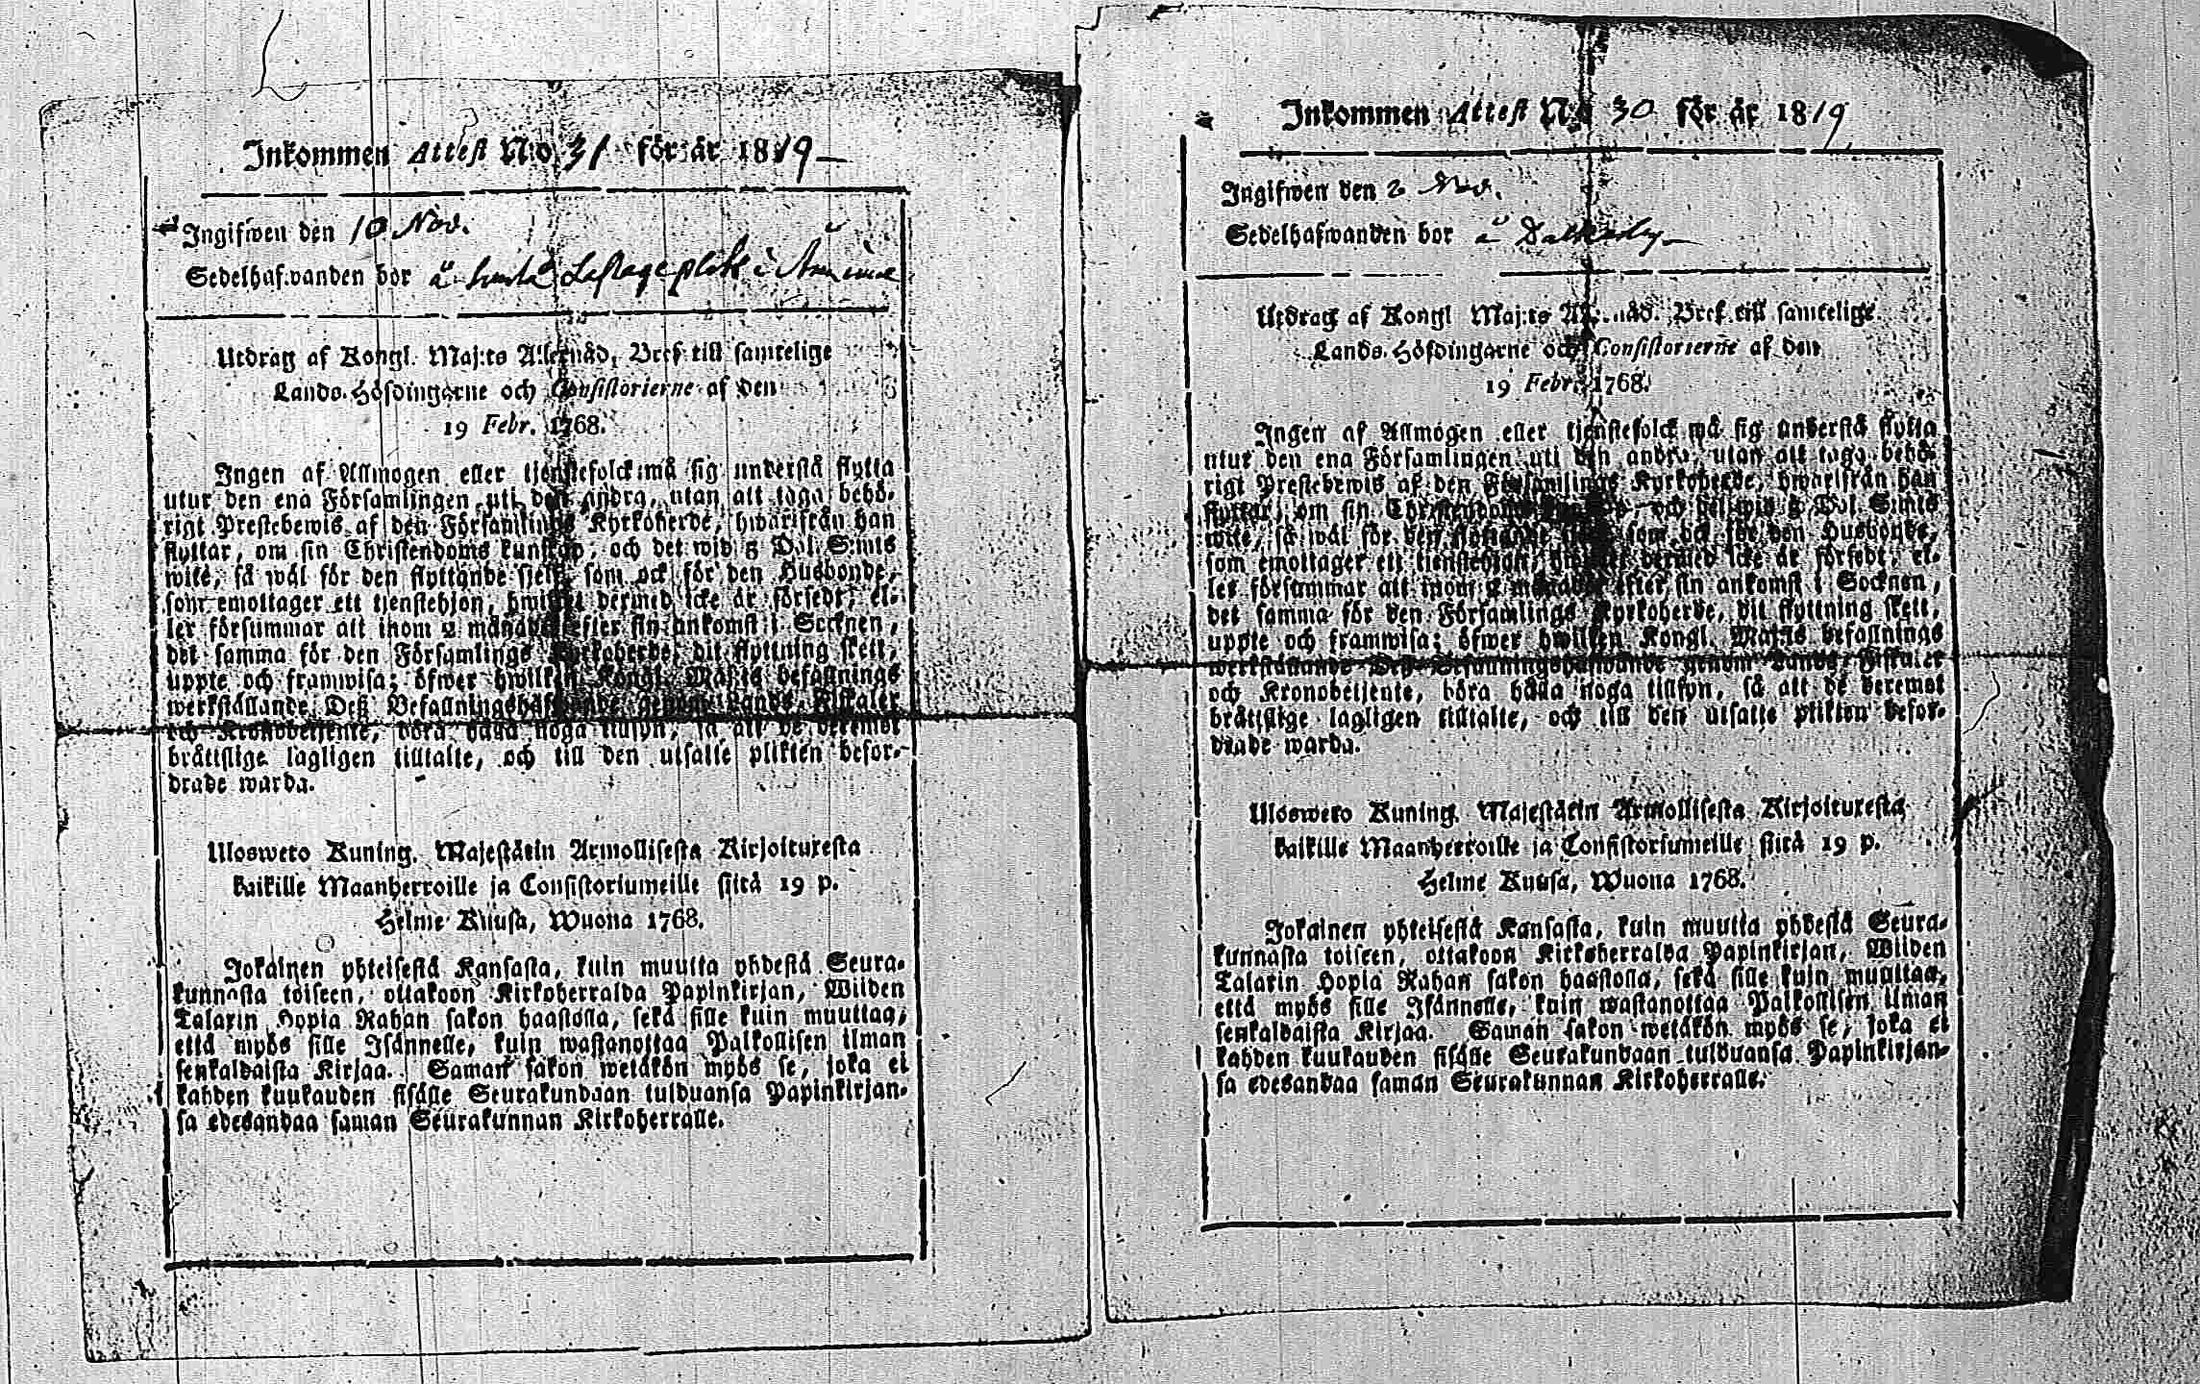 Inkommen Attest No 31 för år 1819
Ingifwen den 10 Nov.
Sedelhafwanden bor å Lastageplats i
Utdrag af Kongl. Maj:ts Allernåd. Bref till samtelige
Lands-Höfdingarne och Consistorierne af den
19 Febr. 1768.
Ingen af Allmogen eller tjenstefolck må sig understå flytta
utur den ena Församlingen uti den andra, utan att taga behö-
rigt Prestebewis af den Församlings Kyrkoherde, hwarifrån han
flyttar, om sin Christendoms kunskap, och det wid 5 Dal. S:mts
wite, så wäl för den flyttande sjelf, som ock för den Husbonde,
som emottager ett tjenstehjon, hwilket dermed icke är försedt, el-
ler försummar att inom 2 månader efter sin ankomst i Socknen,
det samma för den Församlings Kyrkoherde, dit flyttning skett,
uppte och framwisa; öfwer hwilken Kongl. Maj:ts befallnings
werkställande Deß Befallningshafwande genom Lands-Fiskaler
och Kronobetjente, böra hålla noga tillsyn, så att de deremot
bråttslige lagligen tilltalte, och till den utsatte plikten befor-
drade warda.
Uloswето Kuning. Majestätin Armollisesta Kirjoituxesta
kaikille Maanherroille ja Consistoriumeille siitä 19 p.
Helme Kuusa, Wuona 1768.
Jokainen yhteisestä Kansasta, kuin muutta yhdestä Seura-
kunnasta toiseen, ottakoon Kirkoherralda Papinkirjan, Wiiden
Talarin Hopia Rahan sakon haastolla, sekä sille kuin muuttaa,
että myös sille Isännelle, kuin wastanottaa Palkollisen ilman
senkaldaista Kirjaa. Saman sakon wetäkön myös se, joka ei
kahden kuukauden sisälle Seurakundaan tulduansa Papinkirjan-
sa edesandaa saman Seurakunnan Kirkoherralle.
Inkommen Attest No 30 för år 1819
Ingifwen den 2 Nov.
Sedelhafwanden bor å
Utdrag af Kongl Maj:ts Allernåd. Bref till samtelige
Lands-Höfdingarne och Consistorierne af den
19 Febr. 1768.
Ingen af Allmogen eller tjenstefolck må sig understå flytta
utur den ena Församlingen uti den andra, utan att taga behö-
rigt Prestebewis af den Församlings Kyrkoherde, hwarifrån han
flyttar, om sin Christendoms och det wid 5 Dal. S:mts
wite, så wäl för den flyttande som ock för den Husbonde,
som emottager ett tjenstehjon, dermed icke är försedt, el-
ler försummar att inom 2 månader efter sin ankomst i Socknen,
det samma för den Församlings Kyrkoherde, dit flyttning skett,
uppte och framwisa; öfwer hwilken Kongl. Maj:ts befallnings
werkställande Deß Befallningshafwande genom Lands-Fiskaler
och Kronobetjente, böra hålla noga tillsyn, så att de deremot
bråttslige lagligen tilltalte, och till den utsatte plikten befor-
drade warda.
Ulosweto Kuning. Majestätin Armollisesta Kirjoituxesta
kaikille Maanherroille ja Consistoriumeille siitä 19 p.
Helme Kuusa, Wuona 1768.
Jokainen yhteisestä Kansasta, kuin muutta yhdestä Seura-
kunnasta toiseen, ottakoon Kirkoherralda Papinkirjan, Wiiden
Talarin Hopia Rahan sakon haastolla, sekä sille kuin muuttaa,
että myös sille Isännelle, kuin wastanottaa Palkollisen ilman
senkaldaista Kirjaa. Saman sakon wetäkön myös se, joka ei
kahden kuukauden sisälle Seurakundaan tulduansa Papinkirjan-
sa edesandaa saman Seurakunnan Kirkoherralle.